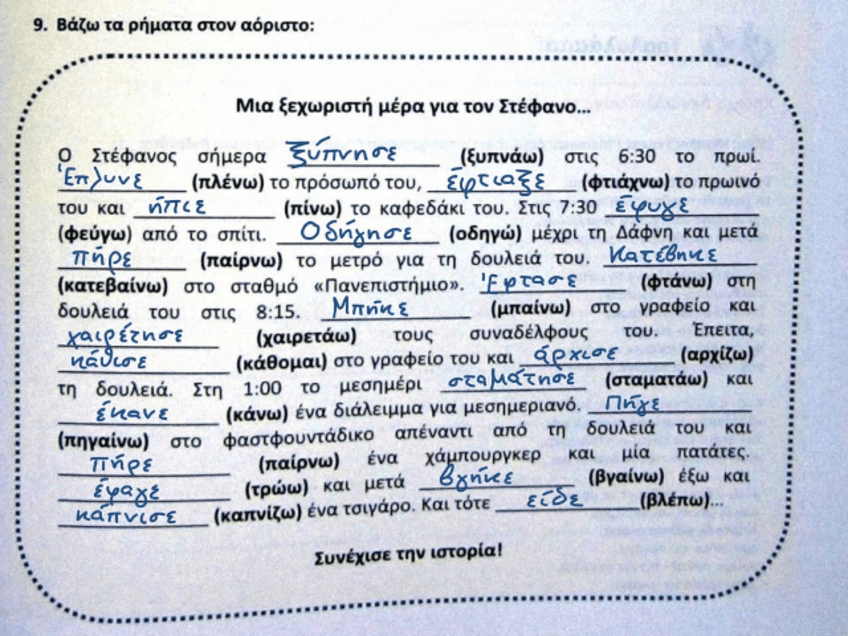 9. Βάζω τα ρήματα στον αόριστο:
Μια ξεχωριστή μέρα για τον Στέφανο...
Ο Στέφανος σήμερα ξύπνησε (ξυπνάω) στις 6:30 το πρωί.
Έπλυνε (πλένω) το πρόσωπό του, έφτιαξε (φτιάχνω) το πρωινό
του και ήπιε (πίνω) το καφεδάκι του. Στις 7:30 έφυγε
(φεύγω) από το σπίτι. Οδήγησε (οδηγώ) μέχρι τη Δάφνη και μετά
πήρε (παίρνω) το μετρό για τη δουλειά του. Κατέβηκε
(κατεβαίνω) στο σταθμό «Πανεπιστήμιο». Έφτασε (φτάνω) στη
δουλειά του στις 8:15. Μπήκε (μπαίνω) στο γραφείο και
χαιρέτησε (χαιρετάω) τους συναδέλφους του. Έπειτα,
κάθισε (κάθομαι) στο γραφείο του και άρχισε (αρχίζω)
τη δουλειά. Στη 1:00 το μεσημέρι σταμάτησε (σταματάω) και
έκανε (κάνω) ένα διάλειμμα για μεσημεριανό. Πήγε
(πηγαίνω) στο φαστφουντάδικο απέναντι από τη δουλειά του και
πήρε (παίρνω) ένα χάμπουργκερ και μία πατάτες.
έφαγε (τρώω) και μετά βγήκε (βγαίνω) έξω και
κάπνισε (καπνίζω) ένα τσιγάρο. Και τότε είδε (βλέπω)...
Συνέχισε την ιστορία!